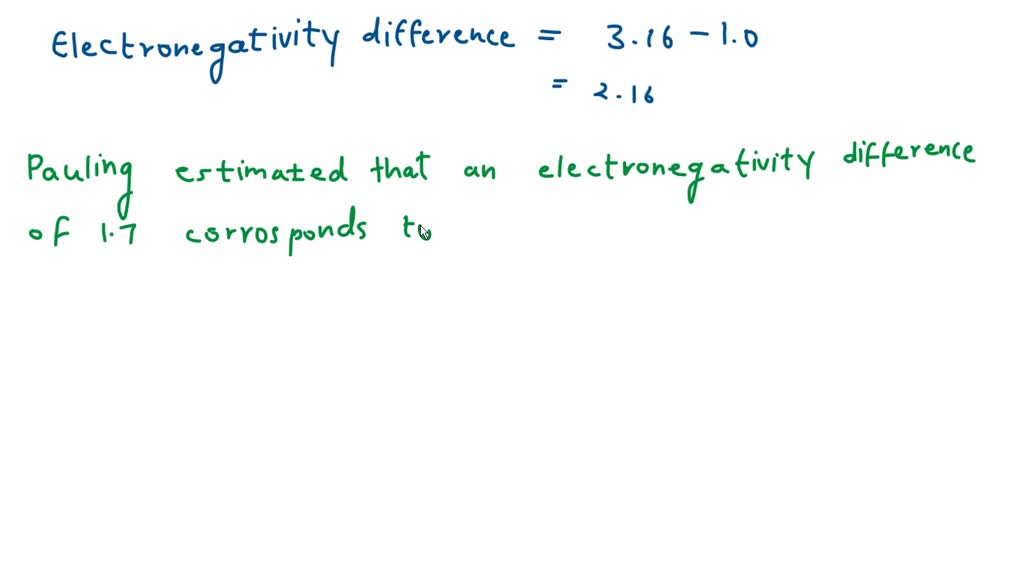 Electronegativity difference = 3.16 - 1.0
= 2.16
Pauling estimated that an electronegativity difference
of 1.7 corrosponds to